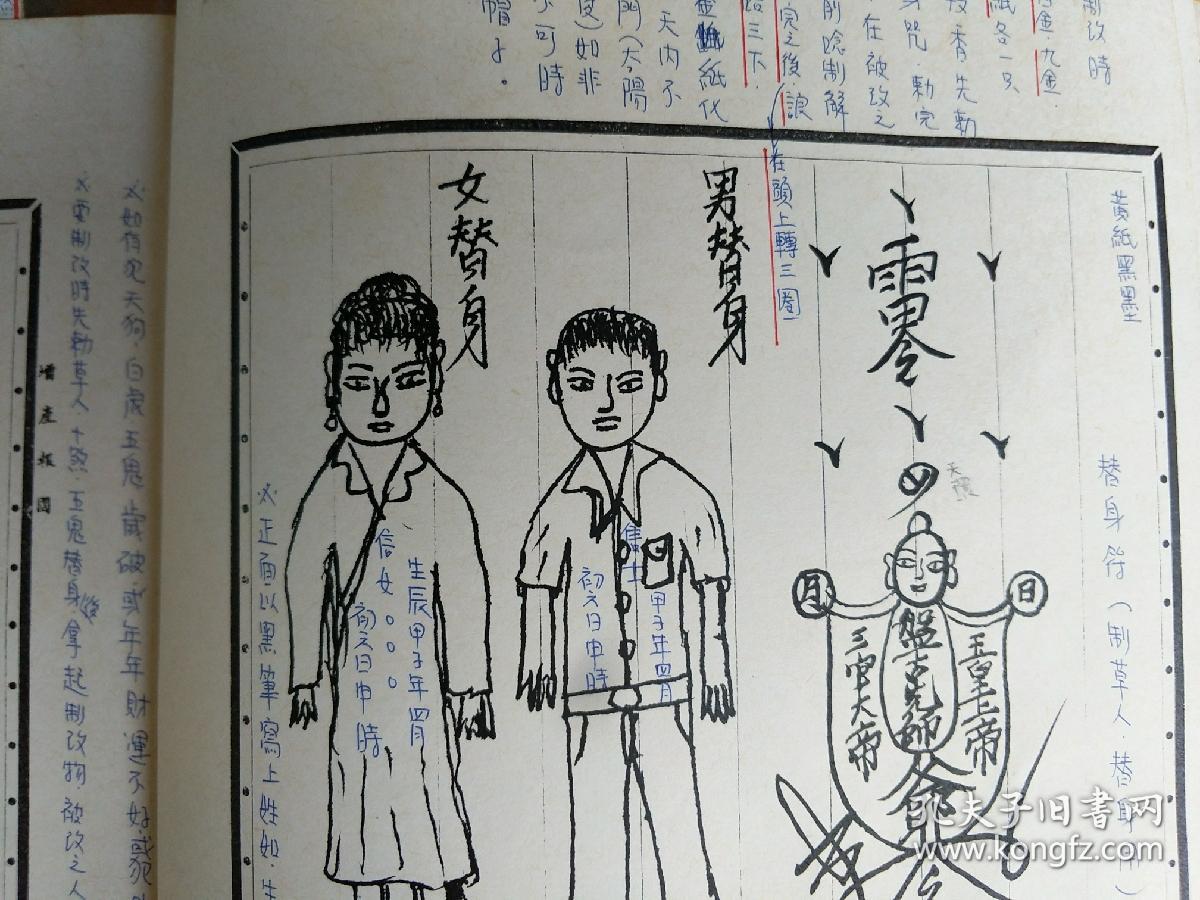 制改時
金.九金.
紙各一只
香先勅
身咒.勅完
在被改之
前唸制解
完之後.
三下.
紙化
天內不
門(太陽
如非
可時
帽子。
黃紙黑墨
替身符(制草人.替身
零
天
月
日
玉皇上帝
盤古先師
三官大帝
在頭上轉三圈
男替身
甲子年四月
初六日申時
女替身
生辰甲子年四月
信女○○○
初六日申時
※正面以黑筆寫上姓如.生
增產報國
※如有犯天狗.白虎五鬼歲破.或年年財運不好.或犯
※要制改時先勅草人十煞.五鬼替身後拿起制改物.被改之人
孔夫子旧書网
www.kongfz.com